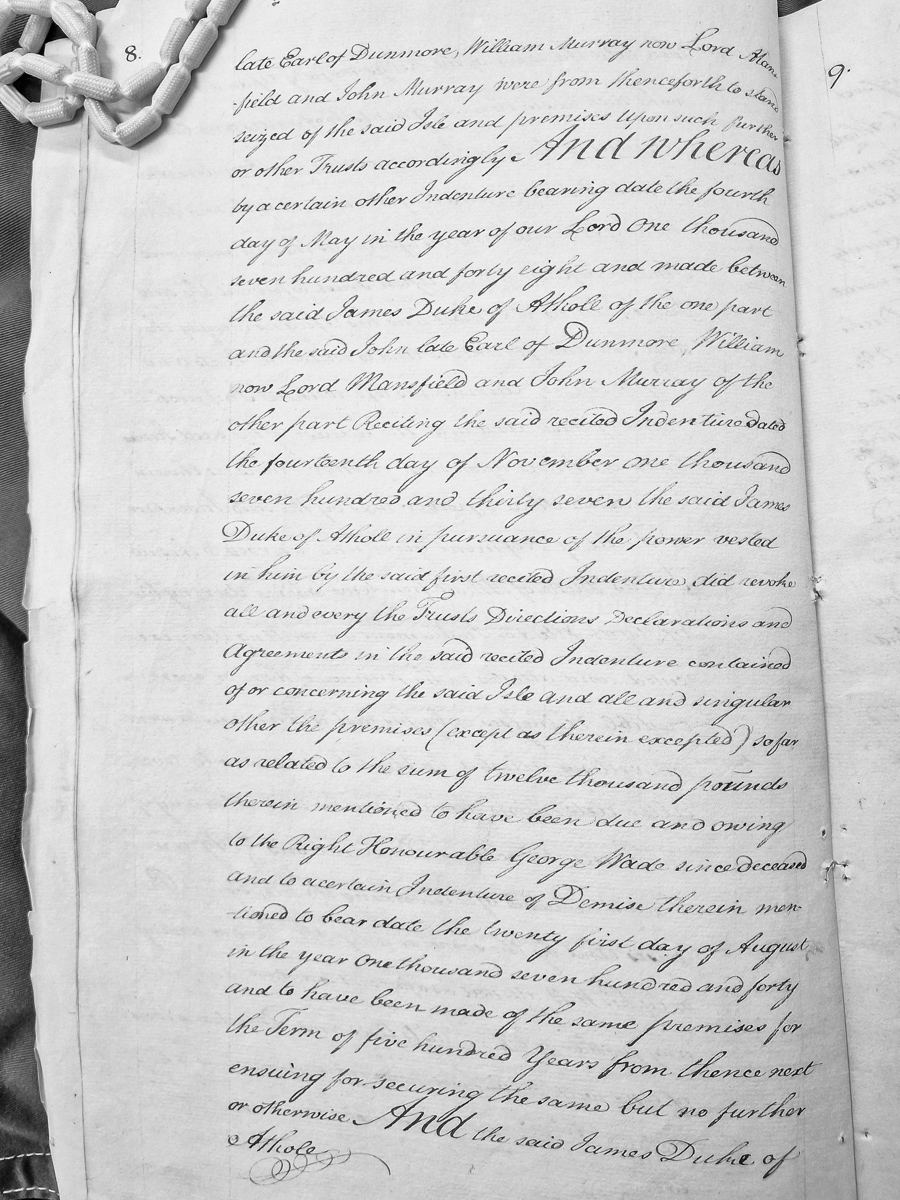 8.
late Earl of Dunmore, William Murray now Lord Man-
-field and John Murray were from thenceforth to stand
seized of the said Isle and premises upon such further
or other Trusts accordingly And whereas
by a certain other Indenture bearing date the fourth
day of May in the year of our Lord One thousand
seven hundred and forty eight and made between
the said James Duke of Atholl of the one part
and the said John late Earl of Dunmore, William
now Lord Mansfield and John Murray of the
other part Reciting the said recited Indenture dated
the fourteenth day of November one thousand
seven hundred and thirty seven the said James
Duke of Atholl in pursuance of the power vested
in him by the said first recited Indenture did revoke
all and every the Trusts Directions Declarations and
Agreements in the said recited Indenture contained
of or concerning the said Isle and all and singular
other the premises (except as therein excepted) so far
as related to the sum of twelve thousand pounds
therein mentioned to have been due and owing
to the Right Honourable George Wade since deceased
and to a certain Indenture of Demise therein men-
-tioned to bear date the twenty first day of August
in the year One thousand seven hundred and forty
and to have been made of the same premises for
the Term of five hundred Years from thence next
ensuing for securing the same but no further
or otherwise And the said James Duke of
Athole
9.